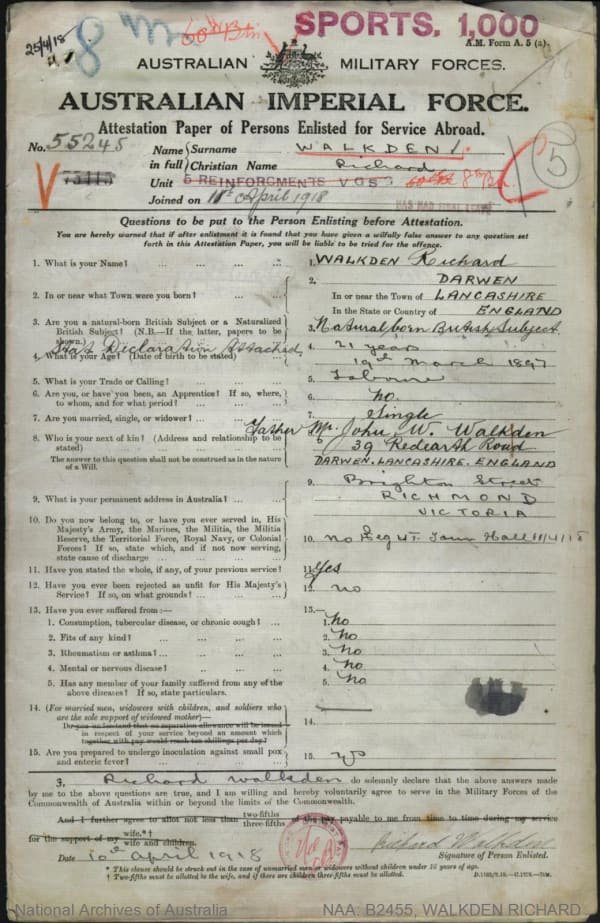 25/4/18
8 M 60th Btn SPORTS. 1,000
A.M. Form A. 5 (a).
AUSTRALIAN MILITARY FORCES.
AUSTRALIAN IMPERIAL FORCE.
Attestation Paper of Persons Enlisted for Service Abroad.
No. 55245
Name in full { Surname WALKDEN
Christian Name Richard
V 73113 Unit 5 REINFORCMENTS V GS 8 Btn.
5
Joined on 11th April 1918
Questions to be put to the Person Enlisting before Attestation.
You are hereby warned that if after enlistment it is found that you have given a wilfully false answer to any question set
forth in this Attestation Paper, you will be liable to be tried for the offence.
1. What is your Name? ... 1. WALKDEN Richard
2. In or near what Town were you born? ... 2. DARWEN
In or near the Town of LANCASHIRE
In the State or Country of ENGLAND
3. Are you a natural-born British Subject or a Naturalized
British Subject? (N.B.—If the latter, papers to be
shown.) 3. Natural born British Subject
Stat Declaration Attached
4. What is your Age? (Date of birth to be stated) 4. 21 years
19th March 1897
5. What is your Trade or Calling? ... 5. Labourer
6. Are you, or have you been, an Apprentice? If so, where,
to whom, and for what period? ... 6. no.
7. Are you married, single, or widower? ... 7. Single
8. Who is your next of kin? (Address and relationship to be
stated) Father Mr. John W. Walkden
39 Redearth Road
DARWEN. LANCASHIRE. ENGLAND
The answer to this question shall not be construed as in the nature
of a Will.
9. What is your permanent address in Australia? ... 9. Brighton Street
RICHMOND
VICTORIA
10. Do you now belong to, or have you ever served in, His
Majesty's Army, the Marines, the Militia, the Militia
Reserve, the Territorial Force, Royal Navy, or Colonial
Forces? If so, state which, and if not now serving,
state cause of discharge ... 10. no Town Hall 11/4/18
11. Have you stated the whole, if any, of your previous service? 11. Yes
12. Have you ever been rejected as unfit for His Majesty's
Service? If so, on what grounds? ... 12. no
13. Have you ever suffered from :— 13.—
1. Consumption, tubercular disease, or chronic cough? ... 1. no
2. Fits of any kind? ... 2. no
3. Rheumatism or asthma? ... 3. no
4. Mental or nervous disease? ... 4. no
5. Has any member of your family suffered from any of the
above diseases? If so, state particulars. 5. no
14. (For married men, widowers with children, and soldiers who
are the sole support of widowed mother)—
Do you understand that no separation allowance will be issued
in respect of your service beyond an amount which
together with pay would reach ten shillings per day? 14.
15. Are you prepared to undergo inoculation against small pox
and enteric fever? 15. yes
I, Richard Walkden do solemnly declare that the above answers made
by me to the above questions are true, and I am willing and hereby voluntarily agree to serve in the Military Forces of the
Commonwealth of Australia within or beyond the limits of the Commonwealth.
And I further agree to allot not less than two-fifths three-fifths of the pay payable to me from time to time during my service
for the support of my wife.*† wife and children.
Richard Walkden
Date 10th April 1918 Signature of Person Enlisted.
* This clause should be struck out in the case of unmarried men or widowers without children under 16 years of age.
† Two-fifths must be allotted to the wife, and if there are children three-fifths must be allotted.
National Archives of Australia NAA: B2455, WALKDEN RICHARD